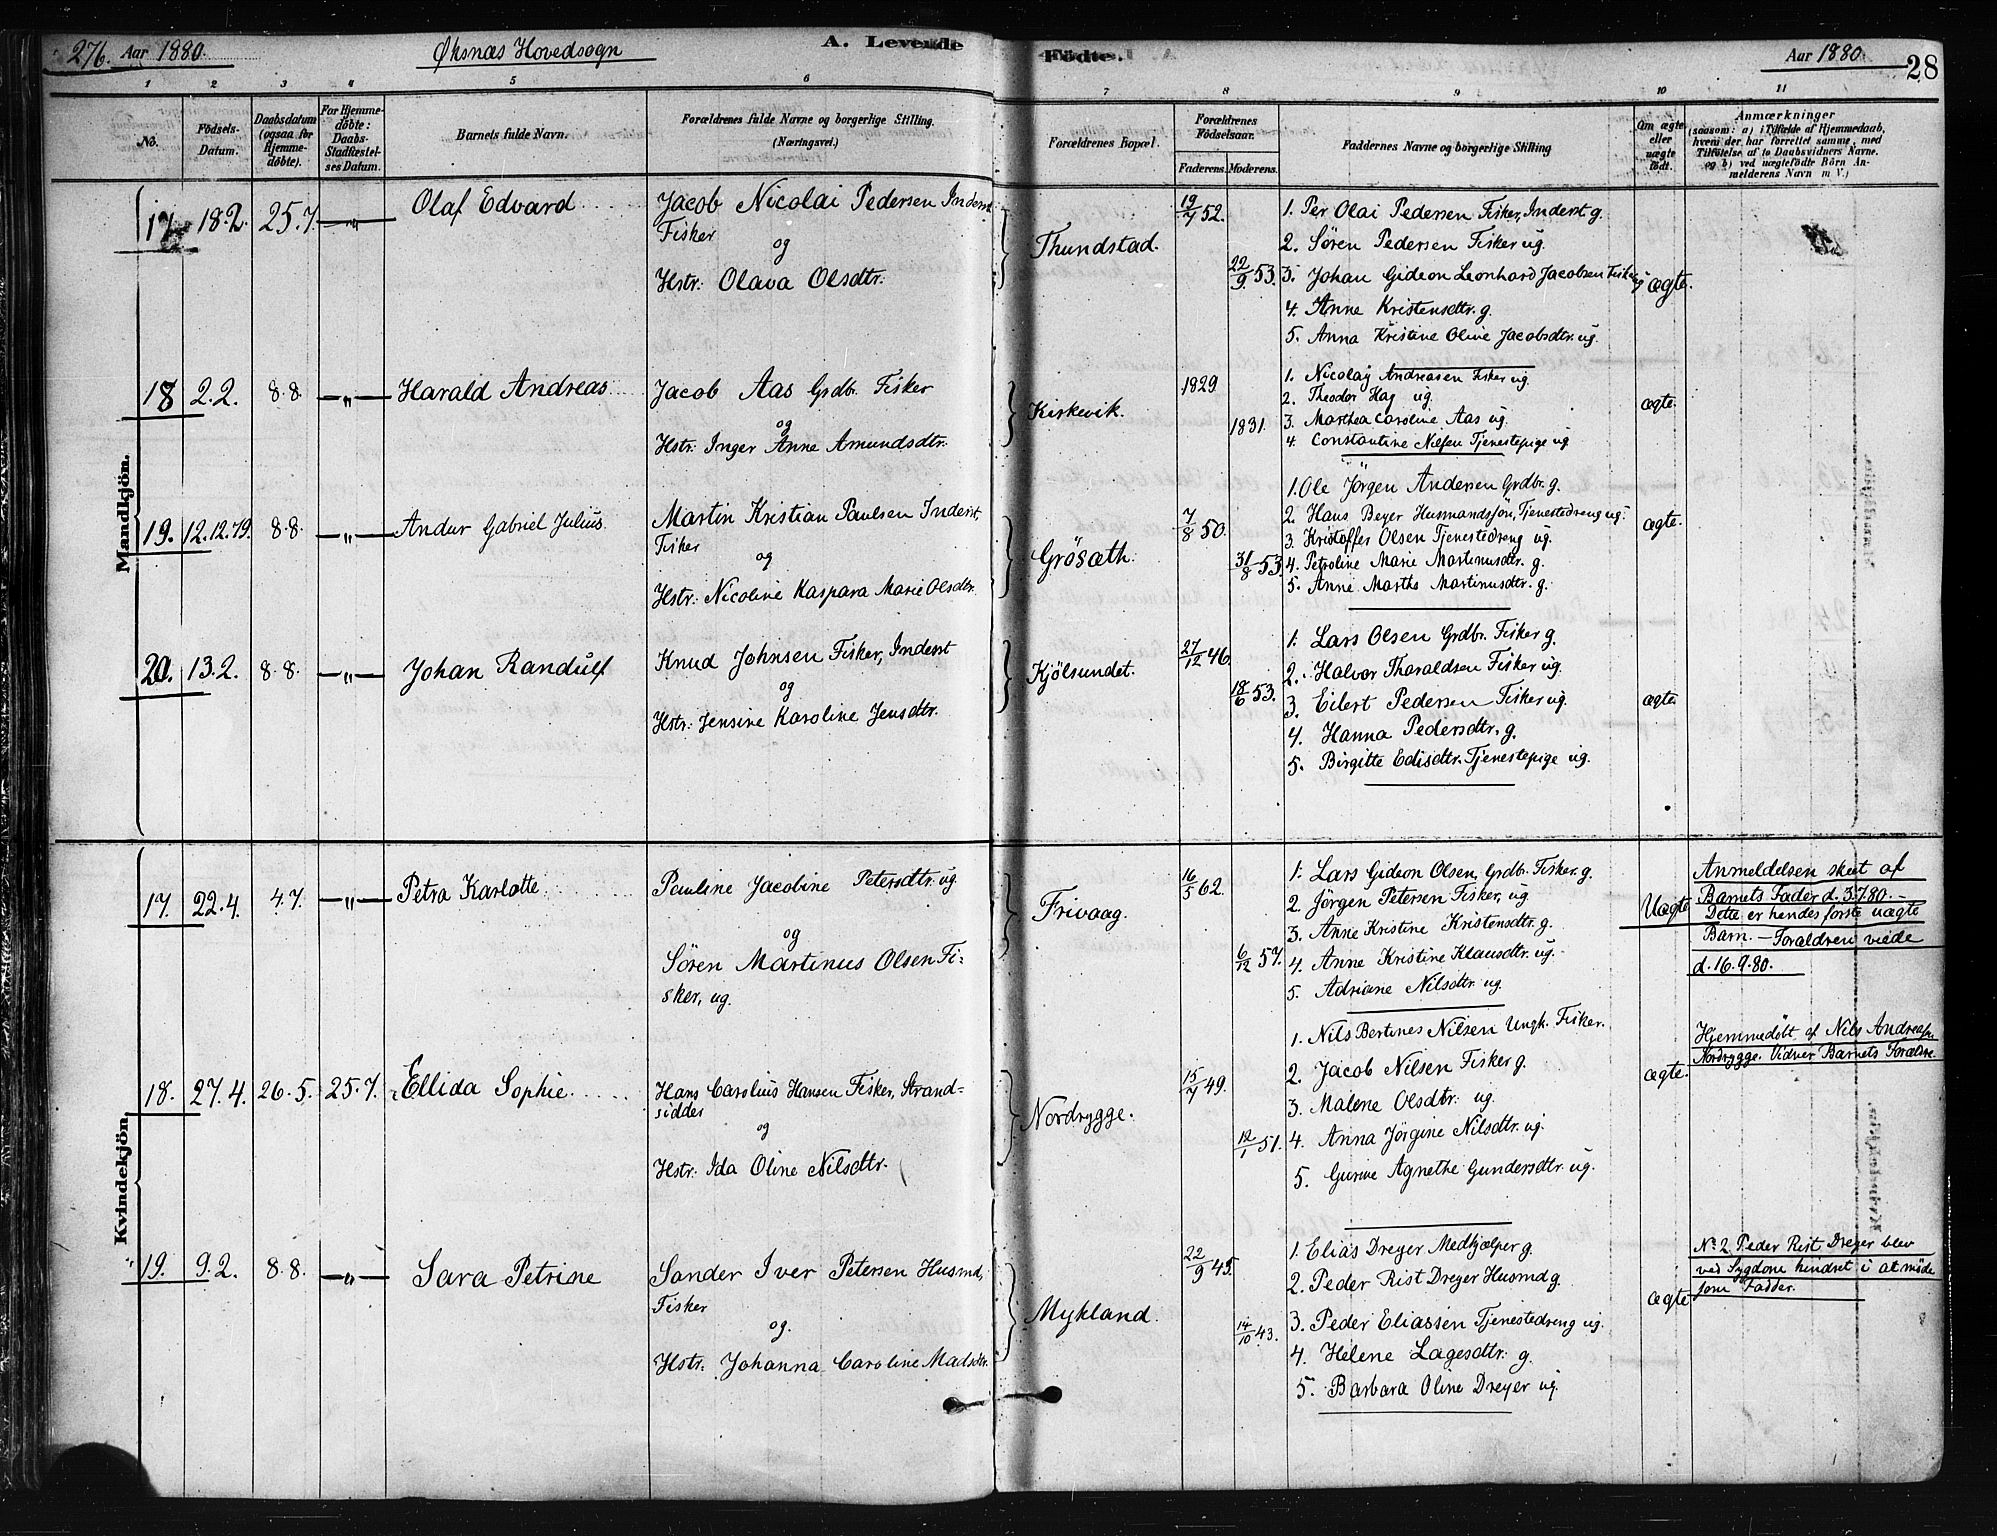 276. Aar 1880. Øksnæs Hovedsogn A. Levende Fødte. Aar 1880. 28
1 2 3 4 5 6 7 8 9 10 11
No.
Fødsels-Datum.
Daabsdatum (ogsaa for Hjemmedøbte).
For Hjemmedøbte: Daabs Stadfæstelses Datum.
Barnets fulde Navn.
Forældrenes fulde Navne og borgerlige Stilling. (Næringsvei.)
Forældrenes Bopæl.
Forældrenes Fødselsaar.
Faderens. Moderens.
Faddernes Navne og borgerlige Stilling
Om ægte eller uægte født.
Anmærkninger
(saasom: a) i Tilfælde af Hjemmedaab,
hvem der har forrettet samme, med
Tilføielse af to Daabsvidners Navne.
og b) ved uægtefødte Børn An-
melderens Navn m V.)
Mandkjön.
17. 18.2. 25.7. —"— Olaf Edvard
Jacob Nicolai Pedersen Inderst
Fisker
og
Hstr: Olava Olsdtr.
Thundstad.
19/7 52.
22/9 53.
1. Per Olai Pedersen Fisker, Inderst g.
2. Sören Pedersen Fisker ug.
3. Johan Gideon Leonhard Jacobsen Fisker ug
4. Anne Kristensdtr. g.
5. Anna Kristine Oline Jacobsdtr. ug.
ægte.
18 2.2. 8.8. —"— Harald Andreas
Jacob Aas Grdbr. Fisker
og
Hstr: Inger Anne Amundsdtr.
Kirkevik.
1829
1831.
1. Nicolay Andreasen Fisker ug.
2. Theodor Hag ug.
3. Marthea Caroline Aas ug.
4. Constantine Nilsen Tjenestepige ug
ægte.
19. 12.12.79. 8.8 —"— Andur Gabriel Julius.
Martin Kristian Paulsen Inderst,
Fisker
og
Hstr: Nicoline Kaspara Marie Olsdtr.
Grösæth.
7/8 50.
31/8 53.
1. Ole Jörgen Andersen Grdbr. g.
2. Hans Beyer Husmandssjön, Tjenestedreng ug.
3. Kristoffer Olsen Tjenestedreng ug.
4. Petroline Marie Martinusdtr. g.
5. Anne Marthe Martinusdtr. g.
ægte.
20. 13.2. 8.8. —"— Johan Randulf
Knud Johnsen Fisker, Inderst
og
Hstr: Jensine Karoline Jensdtr.
Kjölsundet.
27/12 46.
18/6 53.
1. Lars Olsen Grdbr. Fisker g.
2. Halvor Tharaldsen Fisker ug.
3. Eilert Pedersen Fisker ug.
4. Hanna Pedersdtr. g.
5. Birgitte Edisdtr. Tjenestepige ug.
ægte.
Kvindekjön.
17. 22.4. 4.7. —"— Petra Karlotte
Pauline Jacobine Petersdtr. ug
og
Sören Martinus Olsen Fi-
sker, ug.
Frivaag.
16/5 62.
6/12 57.
1. Lars Gideon Olsen, Grdbr. Fisker. g.
2. Jörgen Petersen Fisker, ug.
3. Anne Kristine Kristensdtr. g.
4. Anne Kristine Klausdtr. ug.
5. Adriane Nilsdtr. ug.
Uægte
Anmeldelsen skeet af
Barnets Fader d. 3.7.80.
Dette er hendes første uægte
Barn. – Forældren viede
d. 16.9.80.
18. 27.4. 26.5. 25.7. Ellida Sophie.
Hans Carolius Hansen Fisker, Strand-
sidder
og
Hstr: Ida Oline Nilsdtr.
Nordrygge.
15/7 49.
12/1 51.
1. Nils Bertines Nilsen Ungk. Fisker.
2. Jacob Nilsen Fisker g.
3. Malene Olsdtr. ug.
4. Anna Jörgine Nilsdtr. ug.
5. Gurine Agnethe Gundersdtr. ug.
ægte.
Hjemmedöbt af Nils Andreasen
Nordrygge. Vidner Barnets Forældre.
19. 9.2. 8.8. —"— Sara Petrine
Sander Iver Petersen Husmd,
Fisker
og.
Hstr: Johanna Caroline Madsdtr.
Mykland.
22/9 45.
14/10 43.
1. Elias Dreyer Medhjælper g.
2. Peder Rist Dreyer Husmd g.
3. Peder Eliassen Tjenestedreng ug.
4. Helene Lagesdtr. g.
5. Barbara Oline Dreyer ug.
ægte
No 2 Peder Rist Dreyer blev
ved Sygdom hindret i at møde
som Fadder.